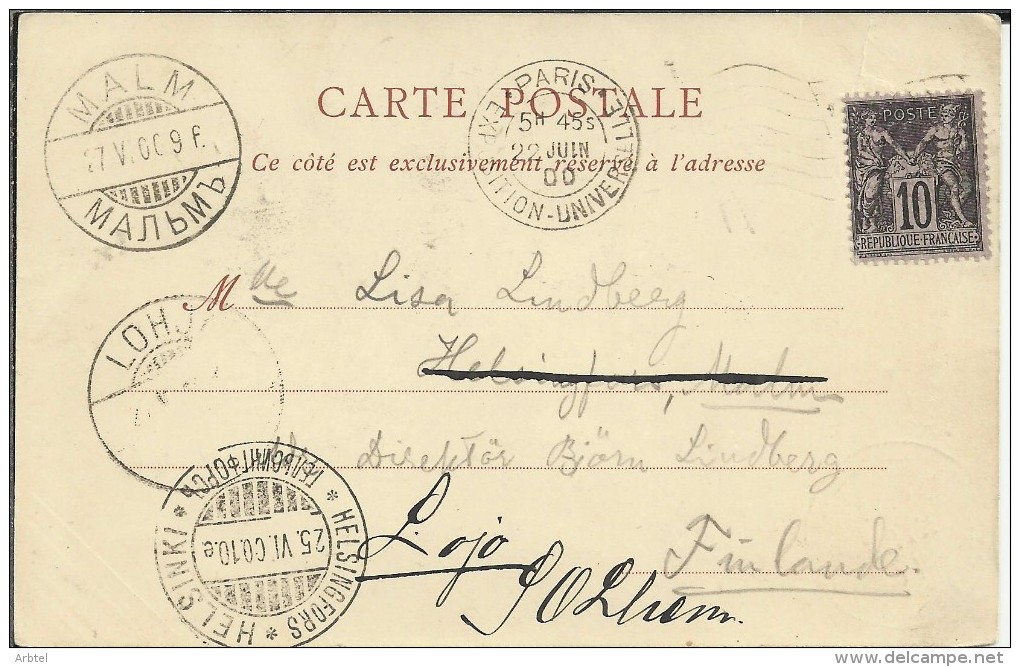 MALM
27 V. 00 9 f.
МАЛЬМЪ
CARTE POSTALE
PARIS
5H 45S
22 JUIN
00
EXPOSITION-UNIVERSELLE
POSTE
10
REPUBLIQUE FRANÇAISE
Ce côté est exclusivement réservé à l'adresse
Mlle Lisa Lindberg
LOHJ
Helsingfors, Malm
Direktör Björn Lindberg
ГЕЛЬСИНГФОРСЪ
25. VI. 00. 10. e
HELSINKI * HELSINGFORS *
Lojo
Finlande.
Arbtel
www.delcampe.net